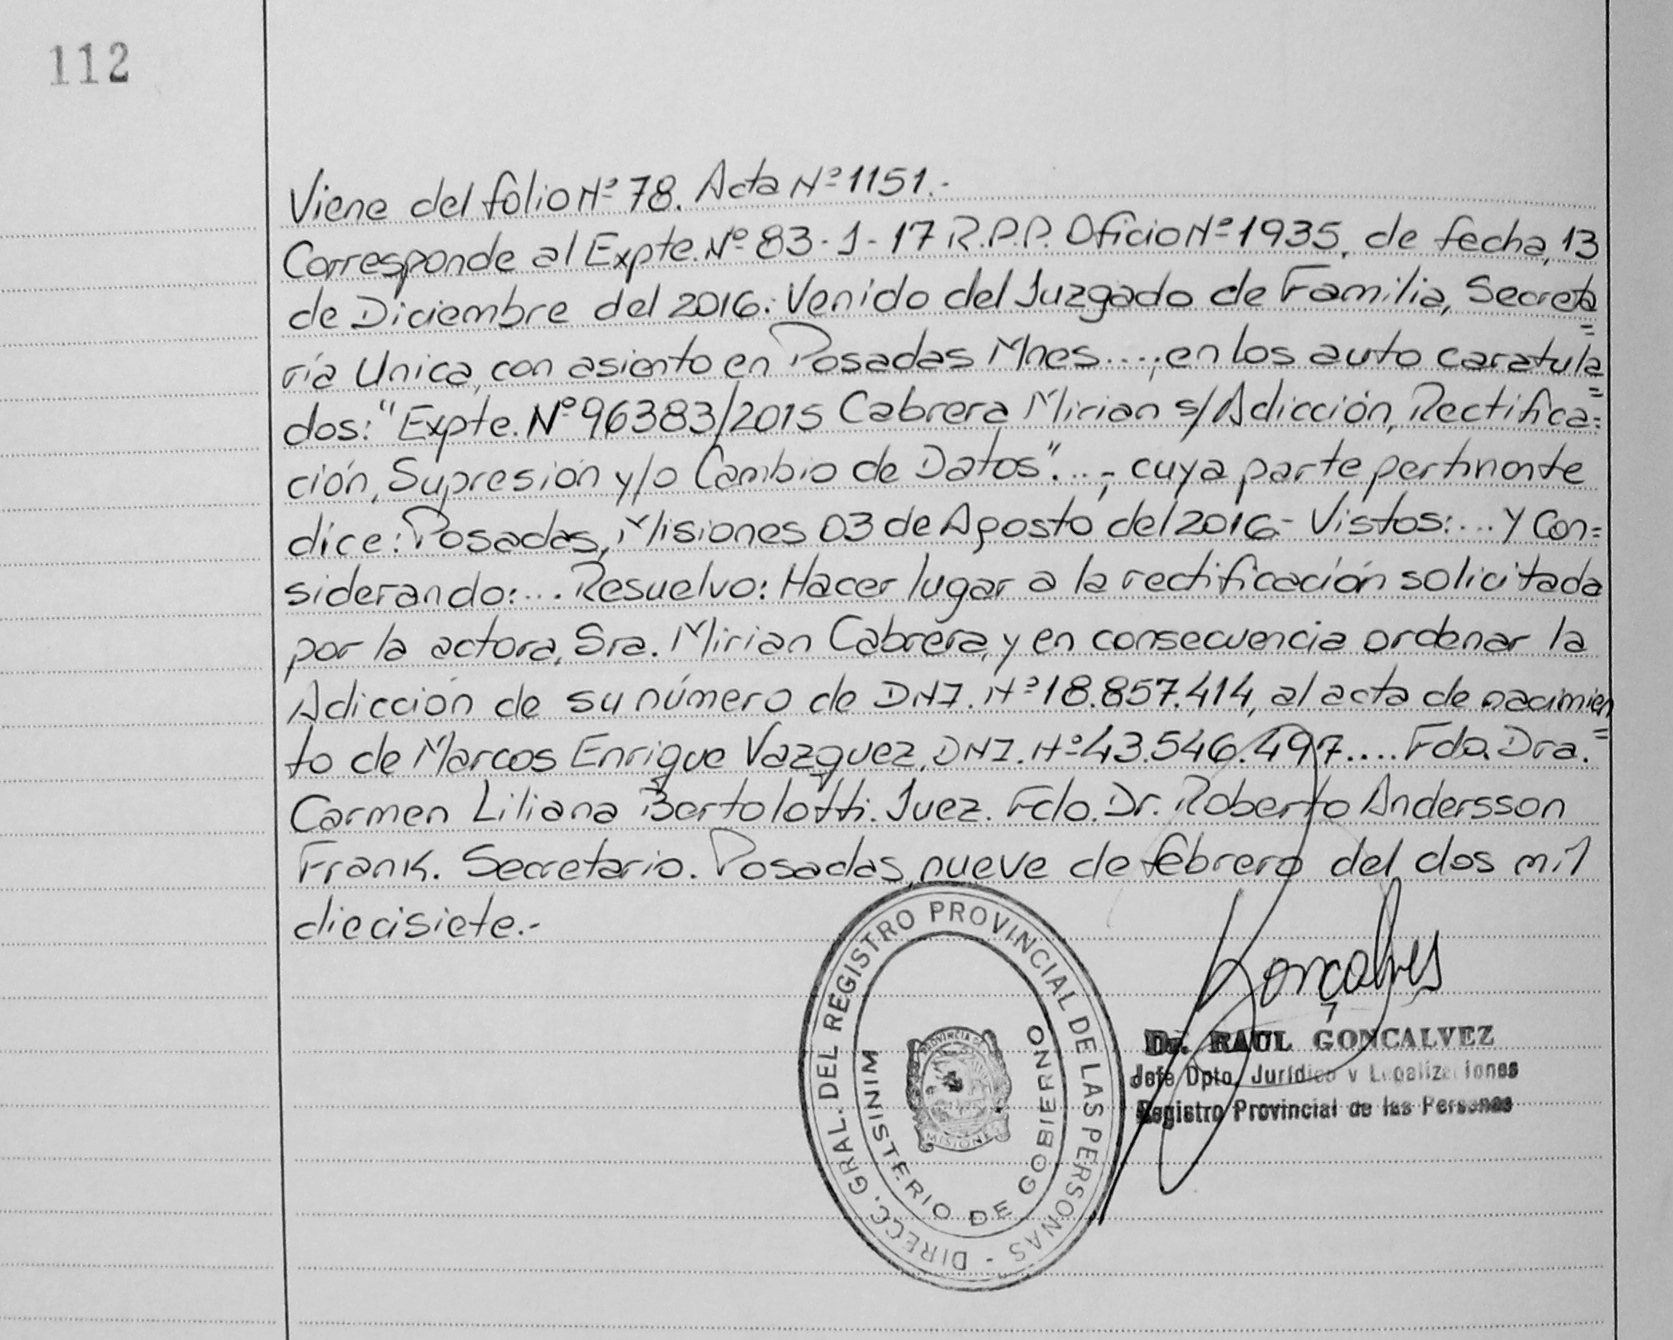 112
Viene del folio Nº 78. Acta Nº 1151.-
Corresponde al Expte. Nº 83-1-17 R.P.P. Oficio Nº 1935, de fecha, 13
de Diciembre del 2016. Venido del Juzgado de Familia, Secreta
=
ría Unica, con asiento en Posadas Mnes....; en los auto caratula
=
dos: "Expte. Nº 96383/2015 Cabrera Mirian s/Adicción, Rectifica=
ción, Supresión y/o Cambio de Datos"...; cuya parte pertinente
dice: Posadas, Misiones 03 de Agosto del 2016- Vistos:... y Con=
siderando:... Resuelvo: Hacer lugar a la rectificación solicitada
por la actora, Sra. Mirian Cabrera, y en consecuencia ordenar la
Adicción de su número de DNI. Nº 18.857.414, al acta de nacimien
=
to de Marcos Enrique Vazquez, DNI. Nº 43.546.497.... Fdo. Dra.
Carmen Liliana Bertolotti. Juez. Fdo. Dr. Roberto Andersson
Frank. Secretario. Posadas, nueve de febrero del dos mil
diecisiete.-
DIRECC. GRAL. DEL REGISTRO PROVINCIAL DE LAS PERSONAS -
MINISTERIO DE GOBIERNO
PROVINCIA DE
MISIONES
Goncalves
Dr. RAUL GONCALVEZ
Jefe Dpto. Jurídico y Legalizaciones
Registro Provincial de las Personas